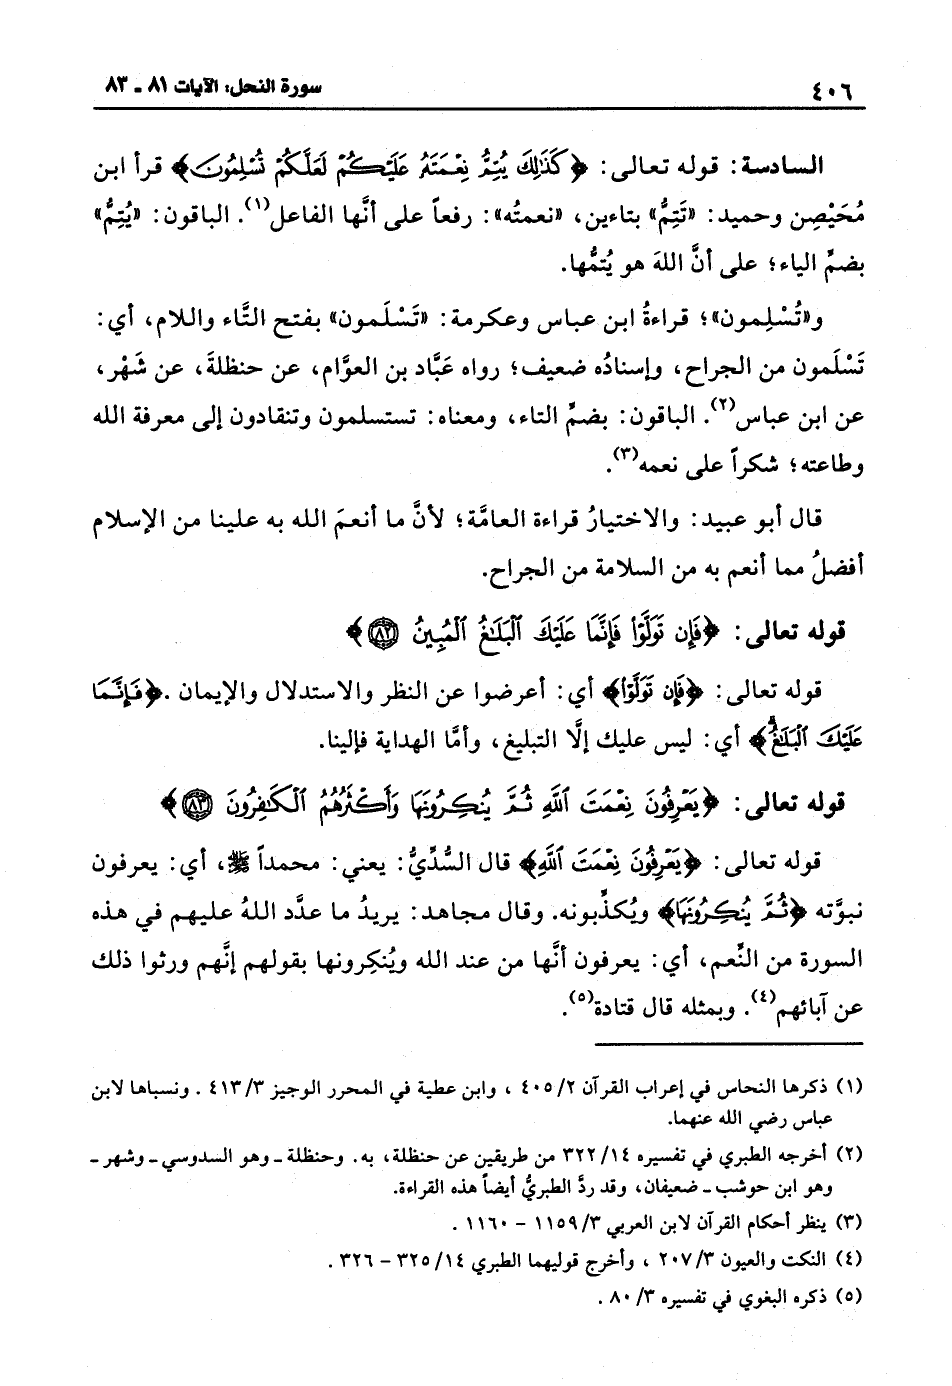 ٤٠٦
سورة النحل: الآيات ٨١ ـ ٨٣
السادسة: قوله تعالى: ﴿كَذَٰلِكَ يُتِمُّ نِعْمَتَهُ عَلَيْكُمْ لَعَلَّكُمْ تُسْلِمُونَ﴾ قرأ ابن
مُحَيْصِن وحميد: «تَتِمُّ» بتاءين، «نعمتُه»: رفعاً على أنَّها الفاعل(١). الباقون: «يُتِمُّ»
بضمِّ الياء؛ على أنَّ اللهَ هو يُتمُّها.
و«تُسْلِمون»؛ قراءةُ ابن عباس وعكرمة: «تَسْلَمون» بفتح التَّاء واللام، أي:
تَسْلَمون من الجراح، وإسنادُه ضعيف؛ رواه عَبَّاد بن العوَّام، عن حنظلةَ، عن شَهْر،
عن ابن عباس(٢). الباقون: بضمِّ التاء، ومعناه: تستسلمون وتنقادون إلى معرفة الله
وطاعته؛ شكراً على نعمه(٣).
قال أبو عبيد: والاختيارُ قراءة العامَّة؛ لأنَّ ما أنعمَ الله به علينا من الإسلام
أفضلُ مما أنعم به من السلامة من الجراح.
قوله تعالى: ﴿فَإِن تَوَلَّوْا۟ فَإِنَّمَا عَلَيْكَ ٱلْبَلَٰغُ ٱلْمُبِينُ ٨٢﴾
قوله تعالى: ﴿فَإِن تَوَلَّوْا۟﴾ أي: أعرضوا عن النظر والاستدلال والإيمان .﴿فَإِنَّمَا
عَلَيْكَ ٱلْبَلَٰغُ﴾ أي: ليس عليك إلَّا التبليغ، وأمَّا الهداية فإلينا.
قوله تعالى: ﴿يَعْرِفُونَ نِعْمَتَ ٱللَّهِ ثُمَّ يُنكِرُونَهَا وَأَكْثَرُهُمُ ٱلْكَٰفِرُونَ ٨٣﴾
قوله تعالى: ﴿يَعْرِفُونَ نِعْمَتَ ٱللَّهِ﴾ قال السُّدِّيُّ: يعني: محمداً ﷺ، أي: يعرفون
نبوَّته ﴿ثُمَّ يُنكِرُونَهَا﴾ ويُكذِّبونه. وقال مجاهد: يريدُ ما عدَّد اللهُ عليهم في هذه
السورة من النِّعم، أي: يعرفون أنَّها من عند الله ويُنكِرونها بقولهم إنَّهم ورثوا ذلك
عن آبائهم(٤). وبمثله قال قتادة(٥).
(١) ذكرها النحاس في إعراب القرآن ٤٠٥/٢ ، وابن عطية في المحرر الوجيز ٤١٣/٣ . ونسباها لابن
عباس رضي الله عنهما.
(٢) أخرجه الطبري في تفسيره ٣٢٢/١٤ من طريقين عن حنظلة، به. وحنظلة ـ وهو السدوسي ـ وشهر ـ
وهو ابن حوشب ـ ضعيفان، وقد ردَّ الطبريُّ أيضاً هذه القراءة.
(٣) ينظر أحكام القرآن لابن العربي ١١٥٩/٣ - ١١٦٠ .
(٤) النكت والعيون ٢٠٧/٣ ، وأخرج قوليهما الطبري ٣٢٥/١٤ - ٣٢٦ .
(٥) ذكره البغوي في تفسيره ٨٠/٣ .